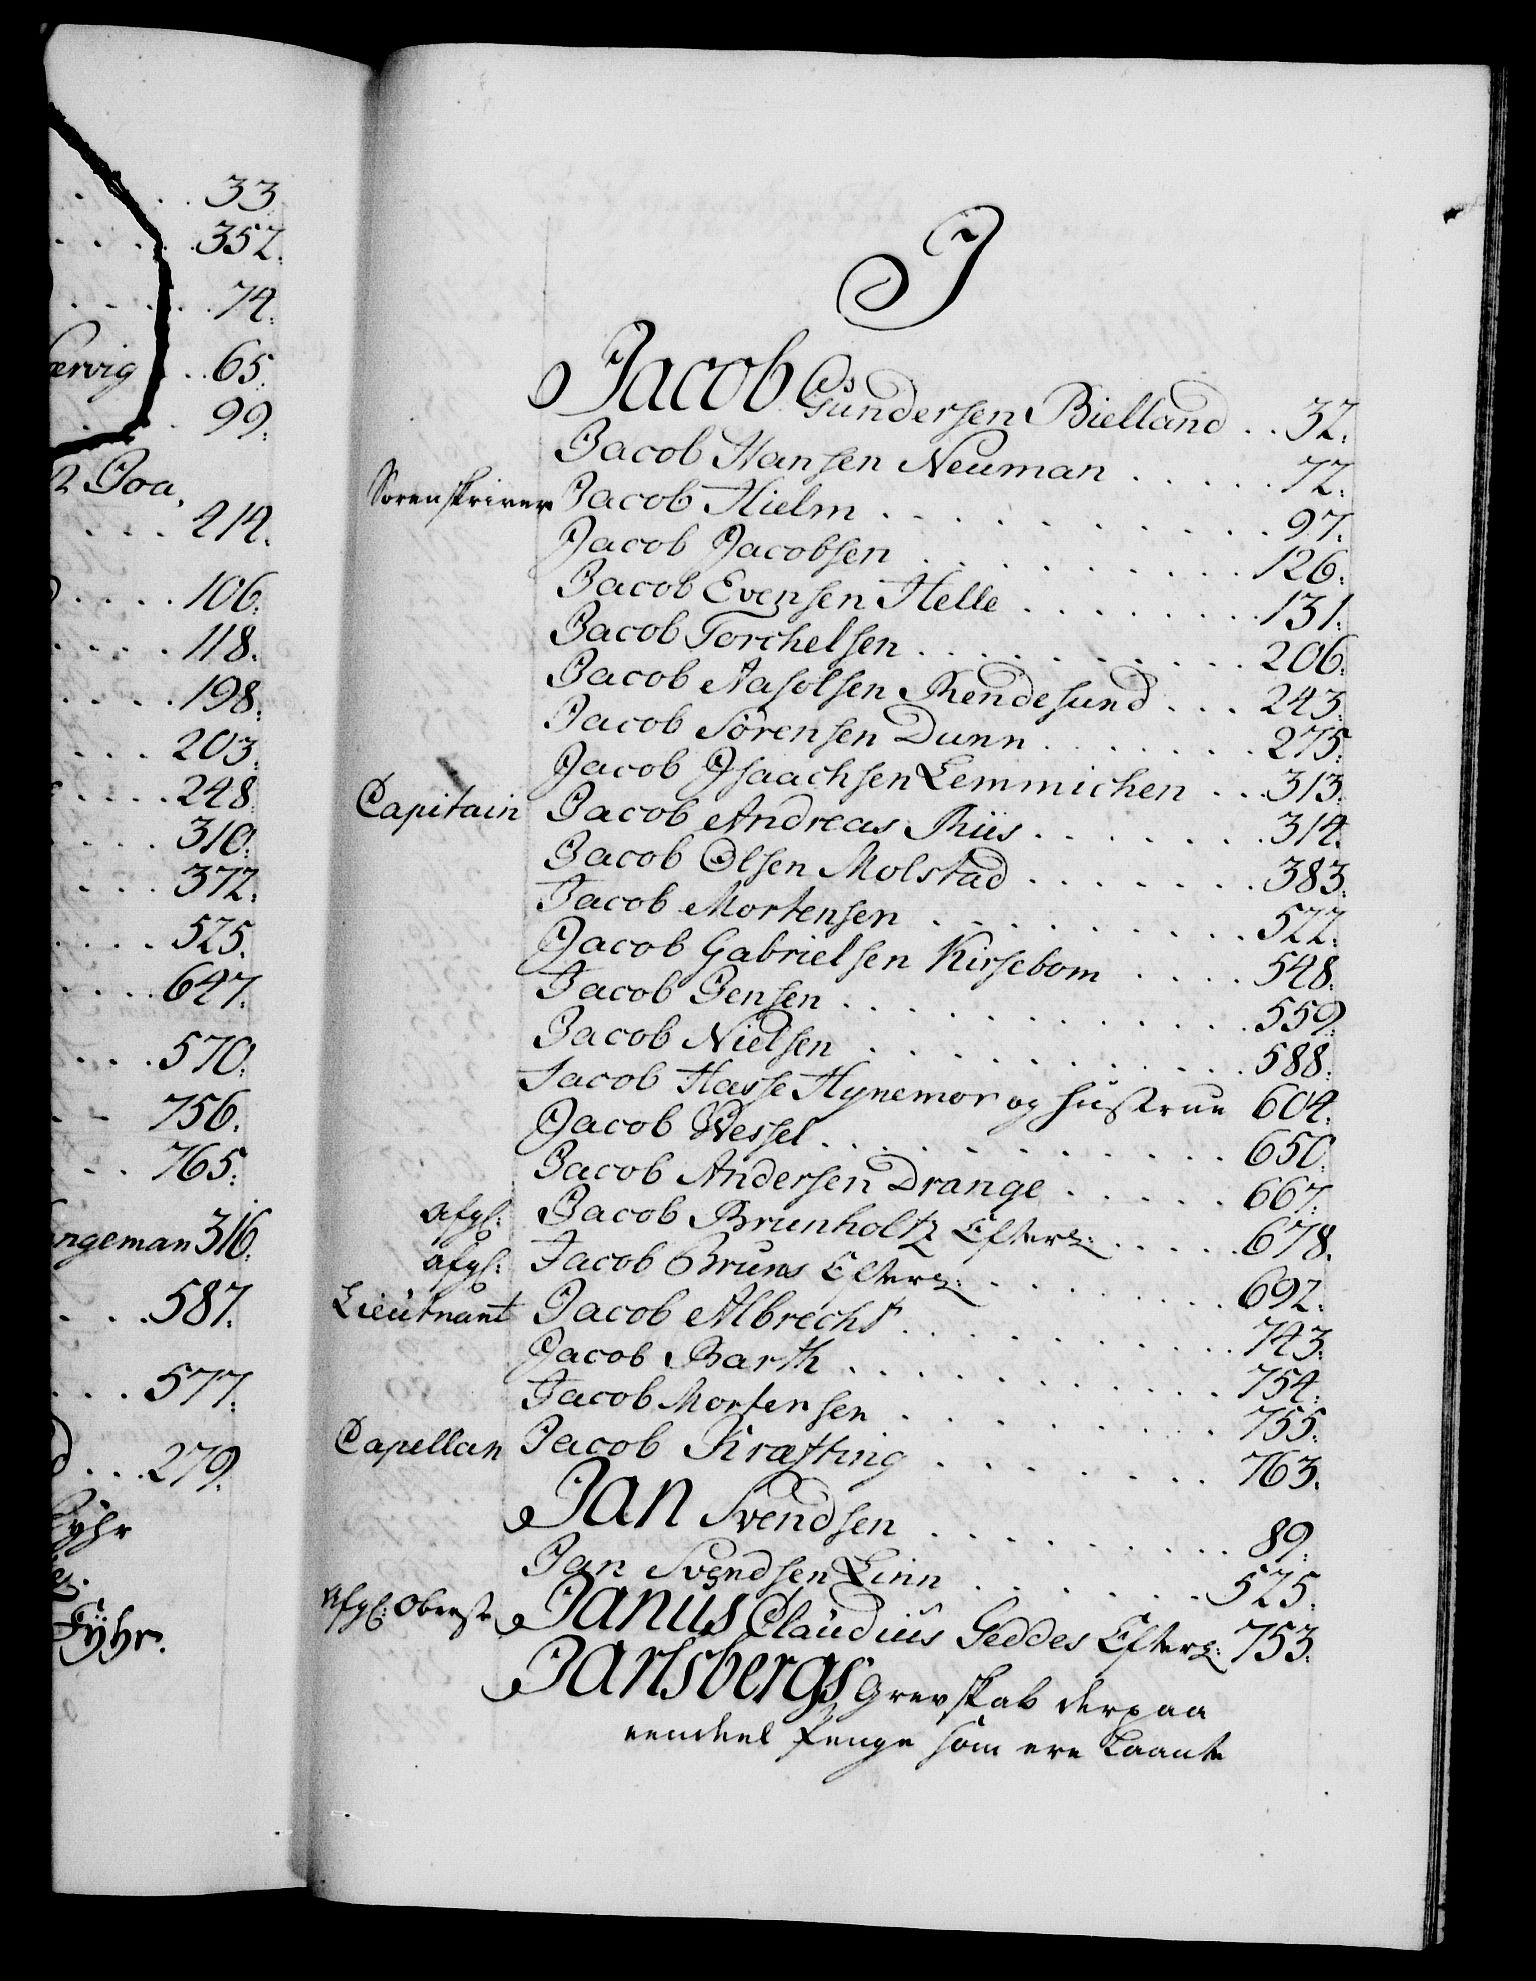 33.
352.
74.
ervig . . 65.
99.
Joa,
214.
106.
118.
198.
203.
248.
310.
372.
525.
647.
570.
756.
765.
ngeman 316.
587.
577.
279.
Fyhr.
J
Jacob Gundersen Bielland . . 32.
Jacob Hansen Neuman . . . . . 72.
Sorenskriver Jacob Hielm . . . . . . . . . . 97.
Jacob Jacobsen . . . . . . . . . . 126.
Jacob Evensen Helle . . . . . . . . 131.
Jacob Torchelsen . . . . . . . . . . 206.
Jacob Aasolsen Rendesund . . . 243.
Jacob Sörensen Dunn . . . . . . . 275.
Jacob Jsaachsen Lemmichen . . 313.
Capitain Jacob Andreas Riis . . . . . . . 314.
Jacob Olsen Molstad . . . . . . . 383.
Jacob Mortensen . . . . . . . . . 522.
Jacob Gabrielsen Kirsebom . . . . 548.
Jacob Jensen . . . . . . . . . . . 559.
Jacob Nielsen . . . . . . . . . . . 588.
Jacob Hasse Hynemor og Hustrue 604.
Jacob Wessel . . . . . . . . . . . 650.
Jacob Andersen Drange . . . . . 667.
Afgl: Jacob Brunholtz Efterl: . . . . . 678.
Afgl: Jacob Bruns Efterl: . . . . . . . 692.
Lieutnant Jacob Albrecht . . . . . . . . . 743.
Jacob Barth . . . . . . . . . . . 754.
Jacob Mortensen . . . . . . . . . 755.
Capellan Jacob Kræfting . . . . . . . 763.
Jan Svendsen . . . . . . . . . . 89.
Jan Svendsen Linn . . . . . . . 525.
Afgl: Oberste Janus Claudius Geddes Efterl: 753.
Jarlsbergs Grevskab derpaa
eendeel Penge som ere Laante